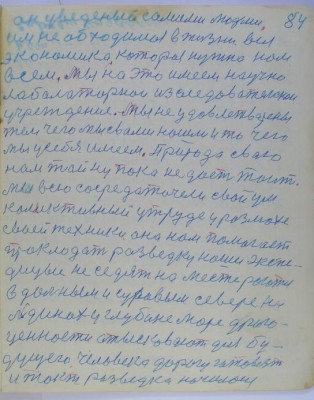 84
ак уведеный самими людми,
им не обходимая в жизни вся
экономика, которая нужна нам
всем. Мы на это имеем научно
лабалаторное изследовательни
учреждение. Мы не удовлетворены
тем чего мы с вами нашли и то чего
мы у себя имеем. Природа сваю
нам тайну пока не дает таит.
Мы всю сосредаточели свой ум
калективный у труде у размахе
своей техники она нам помогает
прокладат разведку наши экспе-
дицыи не седят на месте работи
в дальным и суровым севере на
льдинах и глубине море драго-
ценности отыскивают для бу-
дущего человека дорогу готовят
и такт разведка